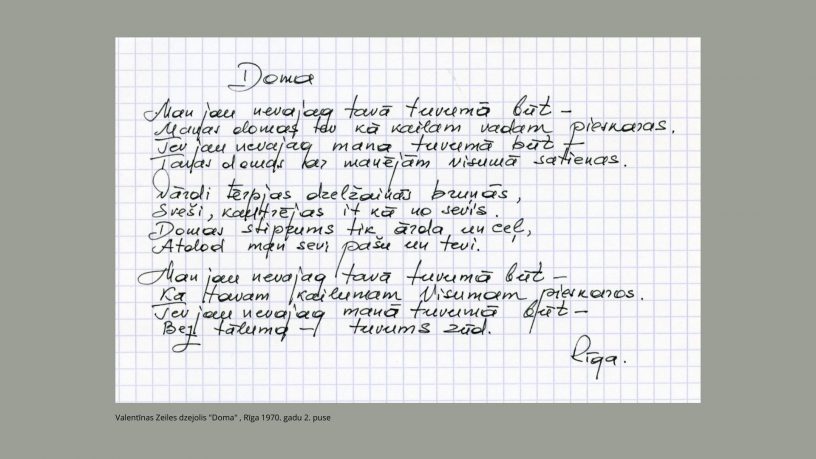 Doma
Man jau nevajag tavā tuvumā būt –
Manas domas tev kā kailam vadam pierskaras.
Tev jau nevajag mana tuvumā būt –
Tavas domas ar manējām visumā satienas.
Vārdi tērpjas dzelžainās bruņās,
Sveši, kautrējas it kā no sevis.
Domas stiprums tik ārda un ceļ,
Atdod man sevi pašu un tevi.
Man jau nevajag tavā tuvumā būt –
Ka tavam kailumam Visumam pierskaros.
Tev jau nevajag manā tuvumā būt –
Bez tāluma – tuvums zūd.
Rīga.
Valentīnas Zeiles dzejolis "Doma" , Rīga 1970. gadu 2. puse